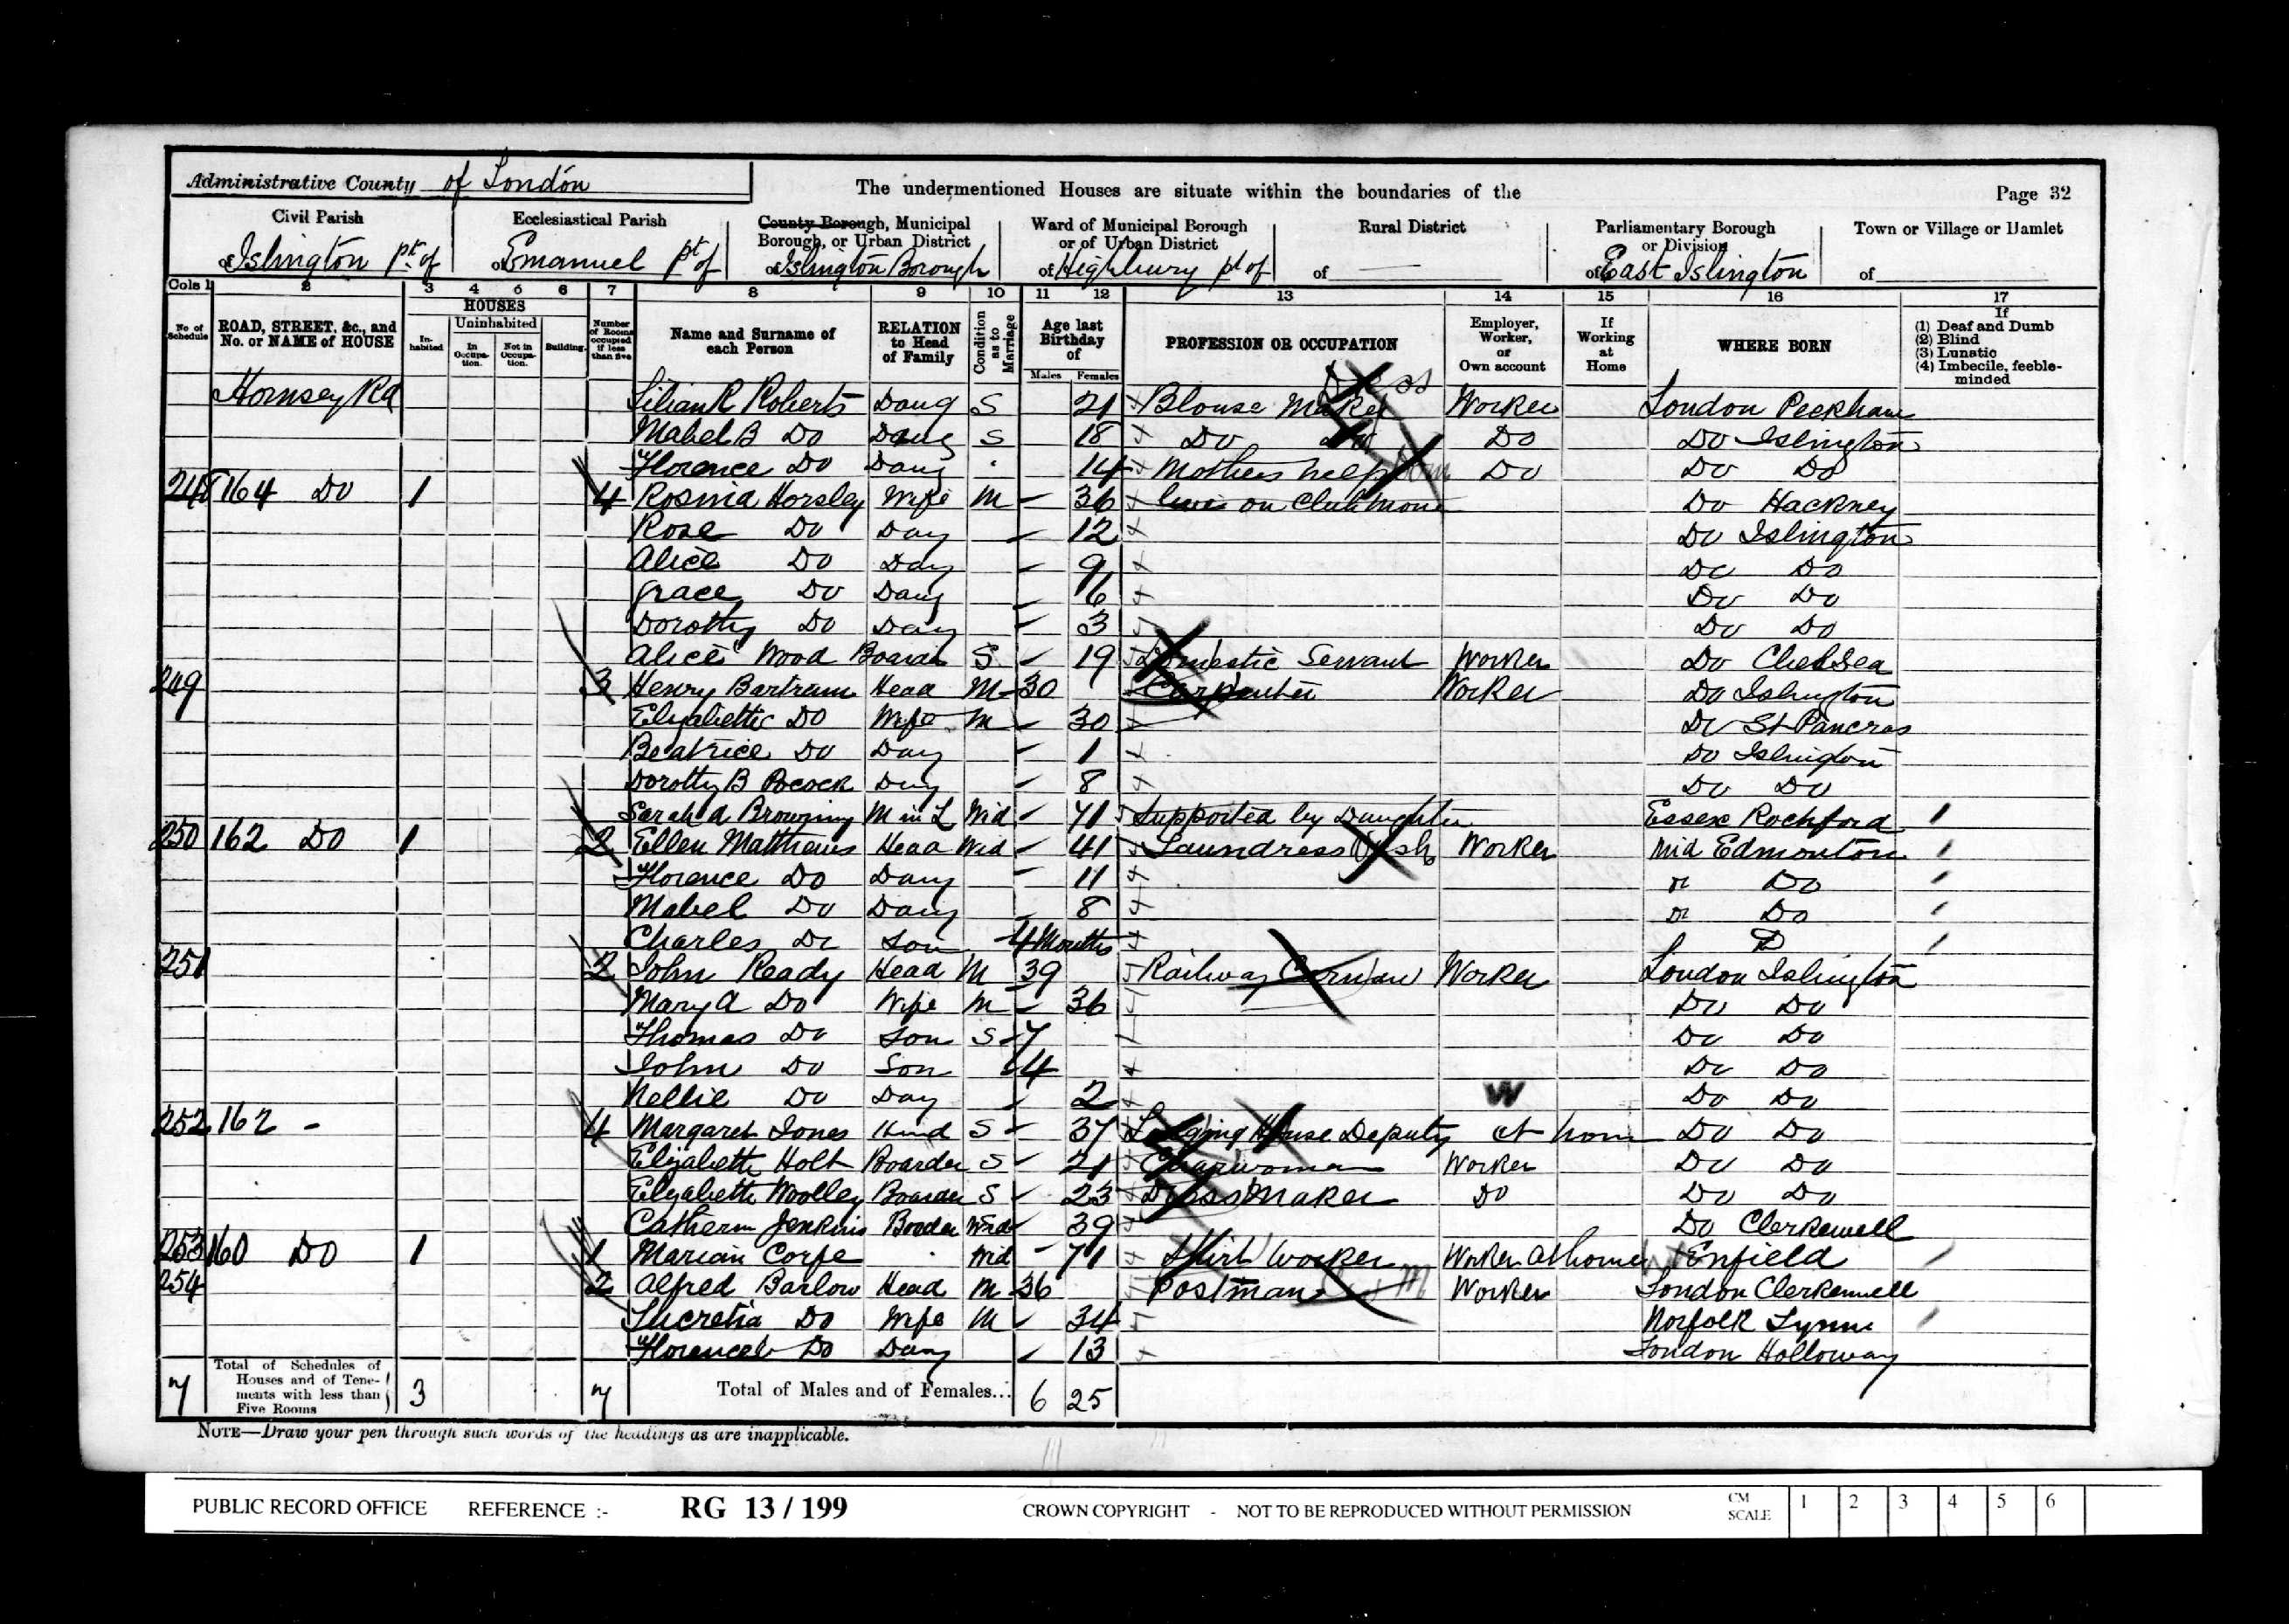 Administrative County of London
The undermentioned Houses are situate within the boundaries of the
Page 32
Civil Parish
of Islington pt of
Ecclesiastical Parish
of Emanuel pt of
County Borough, Municipal Borough, or Urban District
of Islington Borough
Ward of Municipal Borough or of Urban District
of Highbury pt of
Rural District
of —
Parliamentary Borough or Division
of East Islington
Town or Village or Hamlet
of
Cols 1 2 3 4 5 6 7 8 9 10 11 12 13 14 15 16 17
No of Schedule
ROAD, STREET, &c., and No. or NAME of HOUSE
HOUSES
Inhabited
Uninhabited
In Occupation.
Not in Occupation.
Building.
Number of Rooms occupied if less than five
Name and Surname of each Person
RELATION to Head of Family
Condition as to Marriage
Age last Birthday of
Males Females
PROFESSION OR OCCUPATION
Employer, Worker, or Own account
If Working at Home
WHERE BORN
If
(1) Deaf and Dumb
(2) Blind
(3) Lunatic
(4) Imbecile, feeble-minded
Hornsey Rd Lilian R Roberts Daug S 21 Blouse Maker Worker London Peckham
Mabel B Do Daug S 18 Do Do Do Do Islington
Florence Do Daug 14 Mothers help Do Do Do
248 164 Do 1 4 Rosina Horsley Wife M 36 on Club Do Hackney
Rose Do Daug 12 Do Islington
Alice Do Daug 9 Do Do
Grace Do Daug 6 Do Do
Dorothy Do Daug 3 Do Do
Alice Wood Boarder S 19 Domestic Servant Worker Do Chelsea
249 3 Henry Bartram Head M 30 Carpenter Worker Do Islington
Elizabeth Do Wife M 30 Do St Pancras
Beatrice Do Daug 1 Do Islington
Dorothy B Pocock Daug 8 Do Do
Sarah A Browning M in L Wid 71 Supported by Daughter Essex Rochford
250 162 Do 1 2 Ellen Matthews Head Wid 41 Laundress Worker Mid Edmonton
Florence Do Daug 11 Do
Mabel Do Daug 8 Do
Charles Do Son 4 Months Do
251 2 John Ready Head M 39 Railway Carman Worker London Islington
Mary A Do Wife M 36 Do Do
Thomas Do Son S 7 Do Do
John Do Son 4 Do Do
Nellie Do Daug 2 W Do Do
252 162 - 4 Margaret Jones Head S 37 Lodging House Deputy at home Do Do
Elizabeth Holt Boarder S 21 Charwoman Worker Do Do
Elizabeth Woolley Boarder S 23 Dress Maker Do Do Do
Catherin Jenkins Boader Wid 39 Do Clerkewell
253 160 Do 1 1 Marian Corpe Wid 71 Shirt Worker Worker At home Enfield
254 2 Alfred Barlow Head M 36 Postman Worker London Clerkenwell
Lucretia Do Wife M 34 Norfolk Lynn
Florence Do Daug 13 London Holloway
7 Total of Schedules of Houses and of Tenements with less than Five Rooms 3 7 Total of Males and of Females... 6 25
NOTE—Draw your pen through such words of the headings as are inapplicable.
PUBLIC RECORD OFFICE REFERENCE :- RG 13 / 199 CROWN COPYRIGHT - NOT TO BE REPRODUCED WITHOUT PERMISSION
CM SCALE 1 2 3 4 5 6